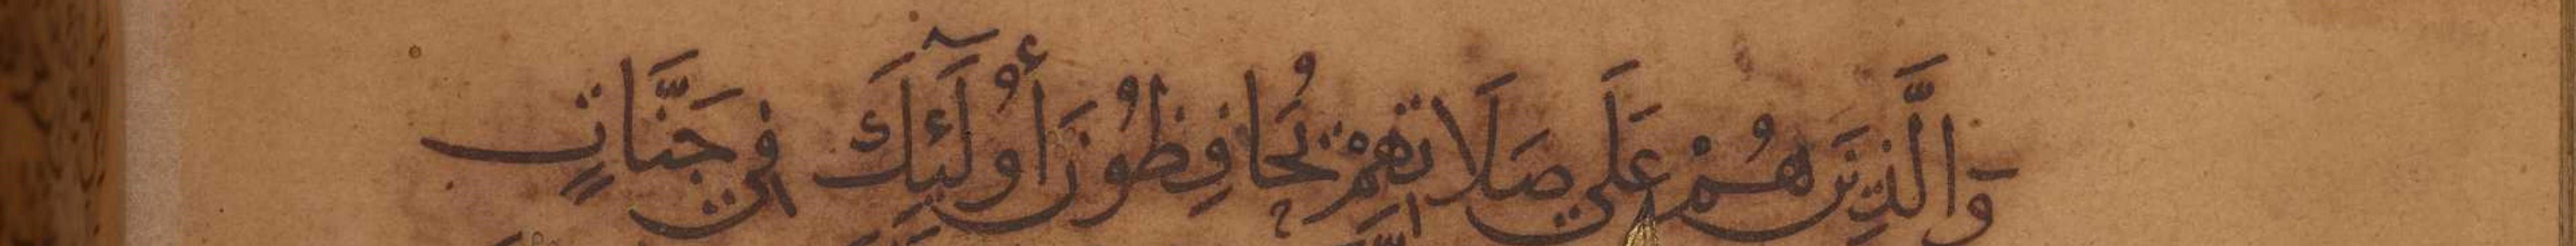 وَالَّذِينَ هُمْ عَلَي صَلَاتِهِمْ يُحَافِظُونَ أُولَٓئِكَ فِي جَنَّاتٍ